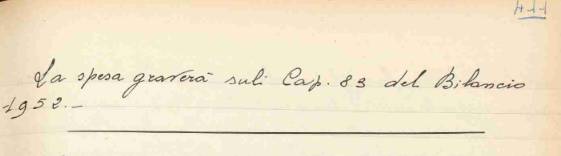 411
La spesa graverà sul Cap. 83 del Bilancio
1952.-